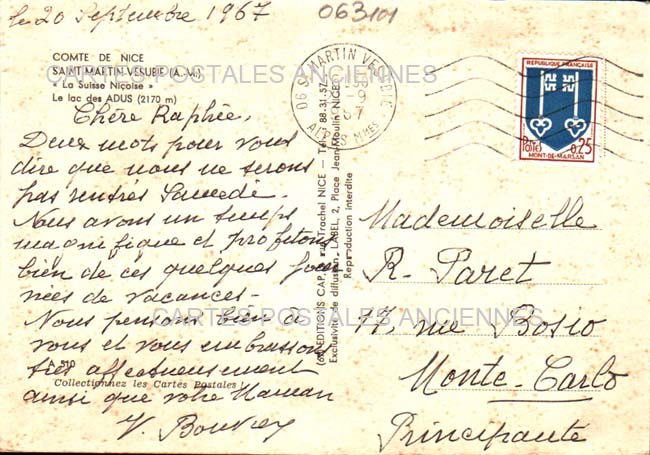 le 20 Septembre 1967
063101
COMTE DE NICE
SAINT-MARTIN-VESUBIE (A.-M.)
« La Suisse Niçoise »
Le lac des ADUS (2170 m)
CARTES POSTALES ANCIENNES
Chère Raphée,
Deux mots pour vous
dire que nous ne serons
pas rentrés Samedi.
Nous avons un temps
magnifique et profitons
bien de ces quelques jour
nées de vacances.
Nous pensons bien à
vous et vous embrassons
très affectueusement
ainsi que votre Maman
V. Bouvrey
510
Collectionnez les Cartes Postales
EDITIONS CAP, rue Trachel NICE - Tél. 88.31.57
Exclusivité de diffusion, LABEL, 2, Place Jean-Moulin NICE
Reproduction interdite
06 ST MARTIN VESUBIE
ALPES Mmes
REPUBLIQUE FRANÇAISE
Postes
0,25
MONT-DE-MARSAN
Mademoiselle
R. Paret
17, rue Bosio
Monte-Carlo
Principauté
CARTES POSTALES ANCIENNES